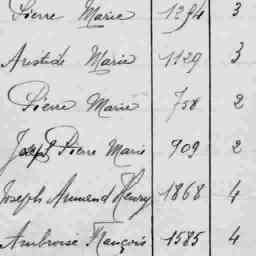 Pierre Marie 1294 3
Aristide Marie 1129 3
Pierre Marie 758 2
Joseph Pierre Marie 909 2
Joseph Armand Henry 1868 4
Ambroise François 1585 4